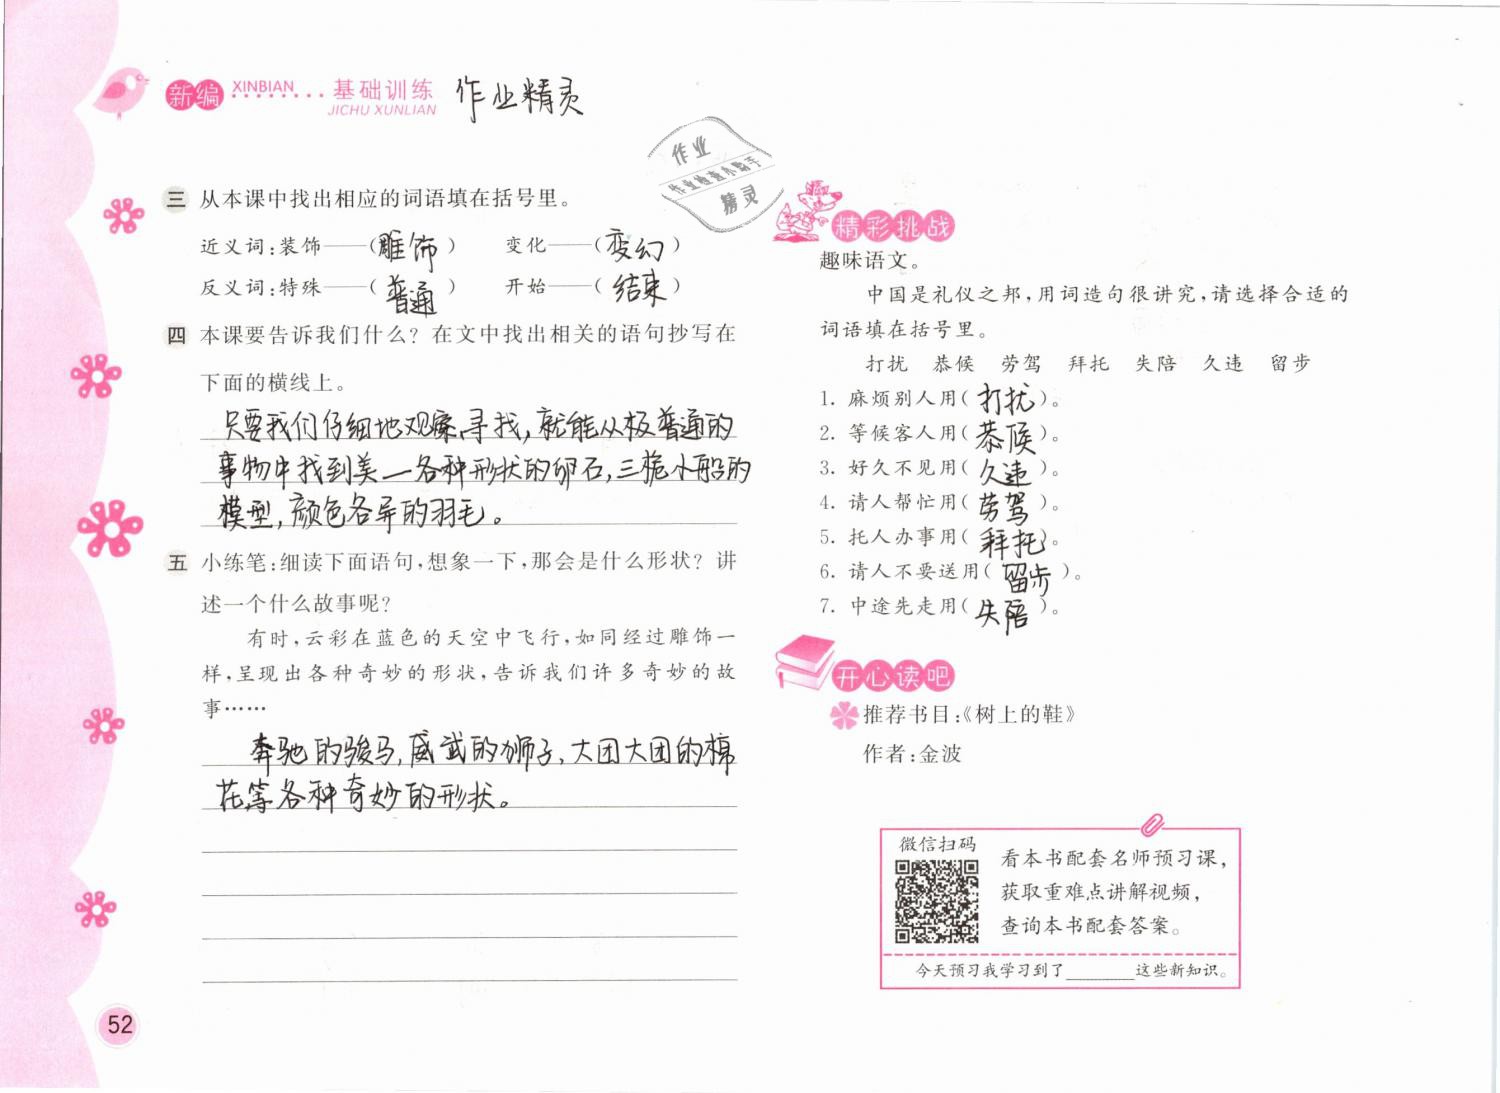 新编 XINBIAN 基础训练 作业精灵
JICHU XUNLIAN
作业
作业检查小助手
精灵
三 从本课中找出相应的词语填在括号里。
近义词:装饰——(雕饰) 变化——(变幻)
反义词:特殊——(普通) 开始——(结束)
四 本课要告诉我们什么?在文中找出相关的语句抄写在
下面的横线上。
只要我们仔细地观察、寻找,就能从极普通的
事物中找到美—各种形状的卵石,三桅小船的
模型,颜色各异的羽毛。
五 小练笔:细读下面语句,想象一下,那会是什么形状?讲
述一个什么故事呢?
有时,云彩在蓝色的天空中飞行,如同经过雕饰一
样,呈现出各种奇妙的形状,告诉我们许多奇妙的故
事……
奔驰的骏马,威武的狮子,大团大团的棉
花等各种奇妙的形状。
52
精彩挑战
趣味语文。
中国是礼仪之邦,用词造句很讲究,请选择合适的
词语填在括号里。
打扰 恭候 劳驾 拜托 失陪 久违 留步
1. 麻烦别人用(打扰)。
2. 等候客人用(恭候)。
3. 好久不见用(久违)。
4. 请人帮忙用(劳驾)。
5. 托人办事用(拜托)。
6. 请人不要送用(留步)。
7. 中途先走用(失陪)。
开心读吧
推荐书目:《树上的鞋》
作者:金波
微信扫码
看本书配套名师预习课,
获取重难点讲解视频,
查询本书配套答案。
今天预习我学习到了______这些新知识。